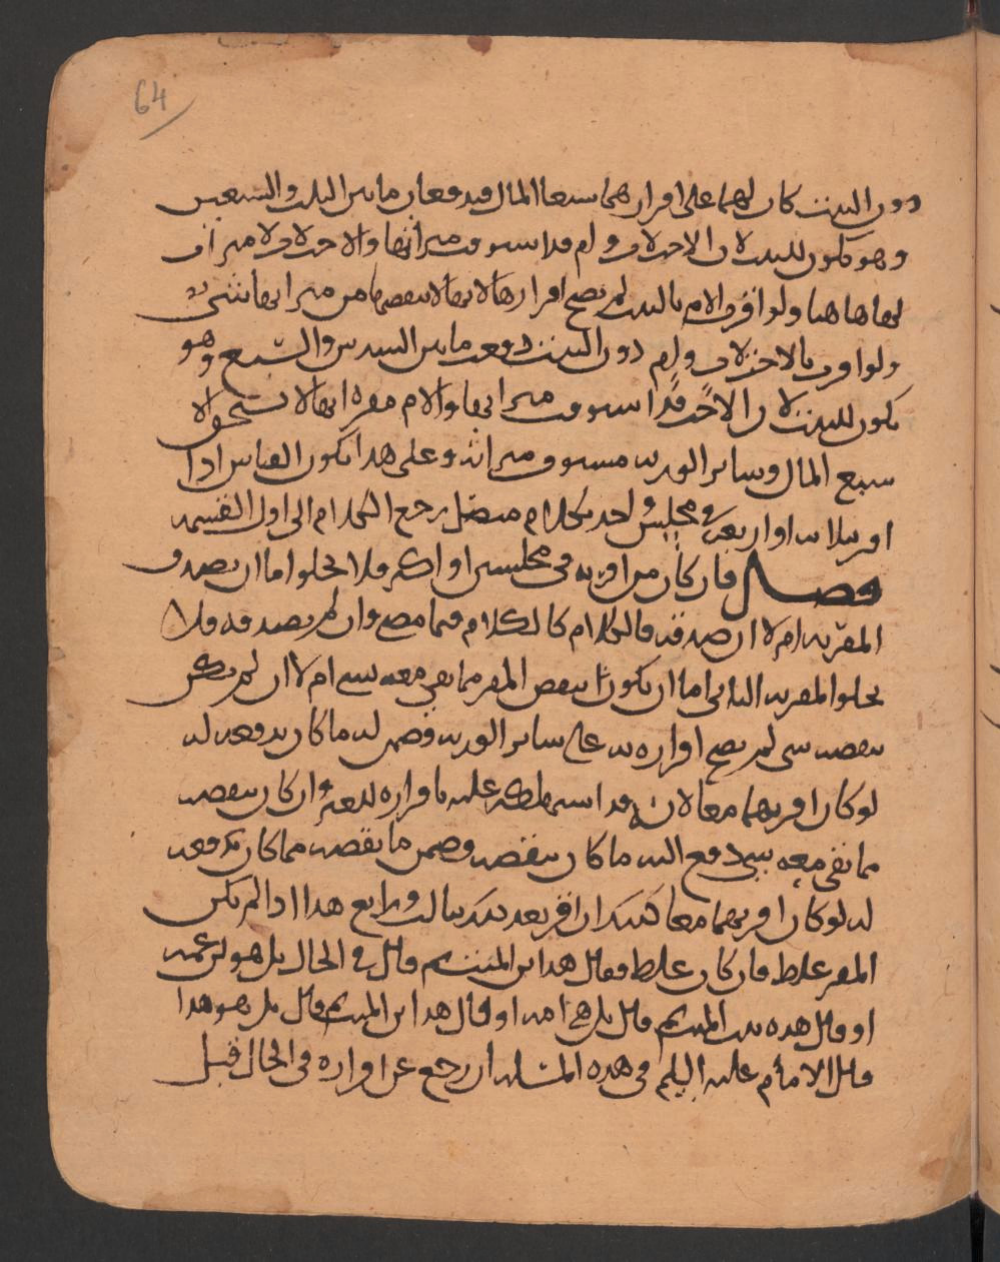 64
دون البنت كان لهما على اقرارهما سبعا المال فيدفعان ما بين الثلث والسبعين
وهو يكون للبنت لان الاخت لاب وام قد استوفت ميراثها والاخت لاب لا ميراث
لها هاهنا ولو اقرت الام بالبنت لم يصح اقرارها لانها لا ينقصها من ميراثها شي
ولو اقرت بالاخت لاب وام دون البنت دفعت ما بين السدس والسبع وهو
يكون للبنت لان الاخت قد استوفت ميراثها والام مقرة انها لا تستحق الا
سبع المال وسائر الورثة مستوف ميراثه وعلى هذا يكون القياس اذا
اقر بثلاثة او اربعة في مجلس واحد بكلام متصل رجع الكلام الى اول القسمة
فصل فان كان من اقر به في مجلسين او اكثر فلا يخلوا اما ان يصدق
المقر به ام لا ان صدقه فالكلام كالكلام فيما مضى وان لم يصدقه فلا
يخلوا المقر به الثاني اما ان يكون ينقص المقر مما بقي معه شي ام لا ان لم يكن
ينقصه شي لم يصح اقراره به على سائر الورثة وضمن له ما كان يدفعه له
لو كان اقر بهما معا لانه قد استهلكه عليه باقراره لغيره وان كان ينقصه
مما بقي معه شي دفع اليه ما كان ينقصه وضمن ما نقصه مما كان يدفعه
له لو كان اقر بهما معا كذلك ان اقر بعد ذلك بثالث ورابع هذا اذا لم يكن
المقر غلط فان كان غلط فقال هذا ابن الميت ثم قال في الحال بل هو ابن عمه
او قال هذه بنت الميت ثم قال بل هي امه او قال هذا ابن الميت ثم قال بل هو هذا
قال الامام عليه السلم في هذه المسئلة ان رجع عن اقراره في الحال قبل